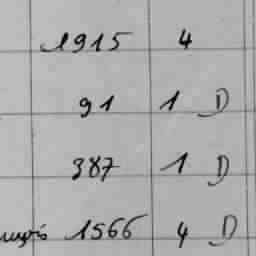 1915 4
91 1 D
387 1 D
1566 4 D